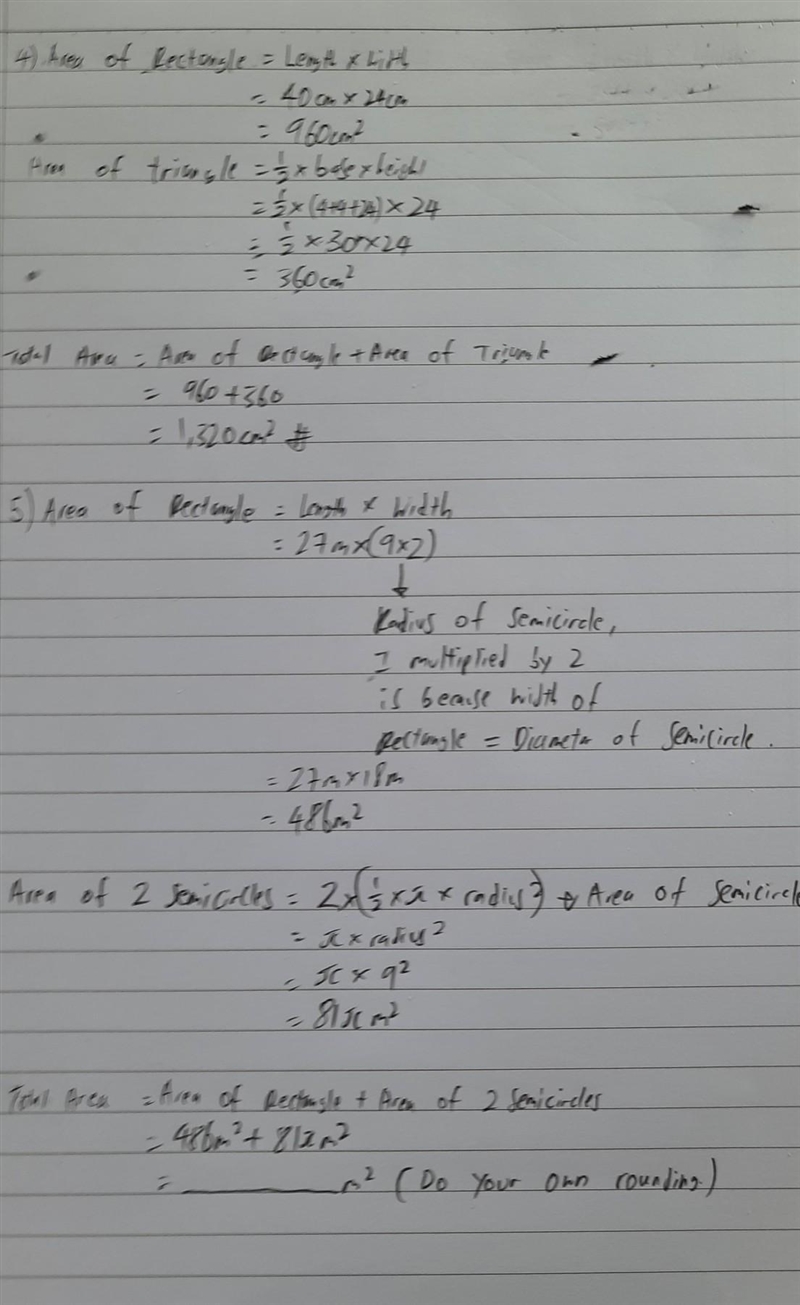 4) Area of Rectangle = Length x
= 40cm x 24cm
= 960cm²
Area of triangle = 1/2 x base x height
= 1/2 x (4+4+24) x 24
= 1/2 x 30 x 24
= 360cm²
Total Area = Area of Rectangle + Area of Triangle
= 960 + 360
= 1,320cm² #
5) Area of Rectangle = Length x Width
= 27m x (9x2)
↓
Radius of semicircle,
I multiplied by 2
is because width of
Rectangle = Diameter of semicircle.
= 27m x 18m
= 486m²
Area of 2 semicircles = 2 x (1/2 x π x radius²) → Area of semicircle
= π x radius²
= π x 9²
= 81π m²
Total Area = Area of Rectangle + Area of 2 semicircles
= 486m² + 81π m²
= ________ m² (Do your own rounding)